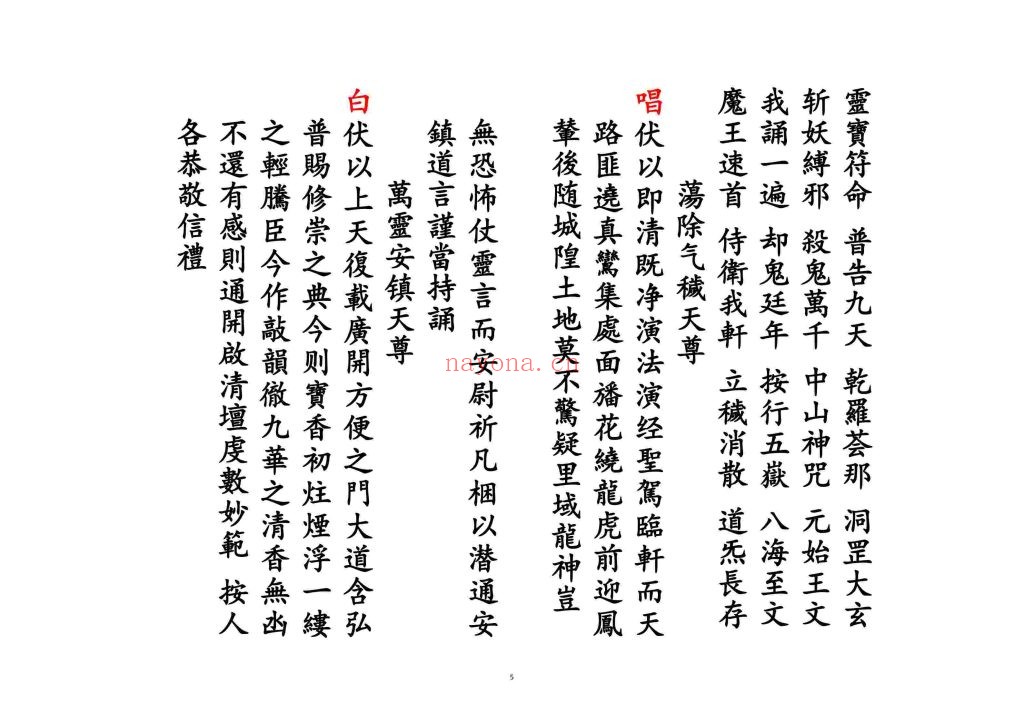 靈寶符命 普告九天 乾羅荟那 洞罡大玄
斩妖縛邪 殺鬼萬千 中山神咒 元始王文
我誦一遍 却鬼廷年 按行五嶽 八海至文
魔王速首 侍衛我軒 立穢消散 道炁長存
蕩除气穢天尊
唱伏以即清既净演法演经聖駕臨軒而天
路匪遶真鸞集處面旛花繞龍虎前迎鳳
輦後随城隍土地莫不驚疑里域龍神豈
無恐怖仗靈言而安尉祈凡梱以潜通安
鎮道言謹當持誦
萬靈安镇天尊
白伏以上天復載廣開方便之門大道含弘
普賜修崇之典今则寶香初炷煙浮一縷
之輕騰臣今作敲韻徹九華之清香無幽
不還有感則通開啟清壇虔數妙範 按人
各恭敬信禮
nayona.cn
5